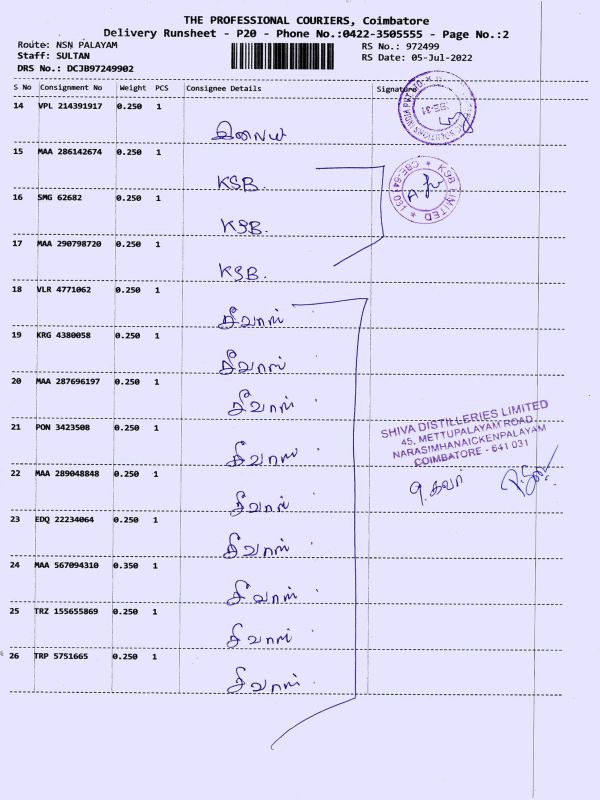 THE PROFESSIONAL COURIERS, Coimbatore
Delivery Runsheet - P20 - Phone No.:0422-3505555 - Page No.:2
Route: NSN PALAYAM RS No.: 972499
Staff: SULTAN RS Date: 05-Jul-2022
DRS No.: DCJB97249902
S No Consignment No Weight PCS Consignee Details Signature
14 VPL 214391917 0.250 1
15 MAA 286142674 0.250 1
KSB.
16 SMG 62682 0.250 1
KSB.
17 MAA 290798720 0.250 1
KSB.
KSB LIMITED
18 VLR 4771062 0.250 1
சிவாஸ்
19 KRG 4380058 0.250 1
சிவாஸ்
20 MAA 287696197 0.250 1
சிவாஸ்
21 PON 3423508 0.250 1
சிவாஸ்
22 MAA 289048848 0.250 1
சிவாஸ்
23 EDQ 22234064 0.250 1
சிவாஸ்
24 MAA 567094310 0.350 1
சிவாஸ்
25 TRZ 155655869 0.250 1
சிவாஸ்
26 TRP 5751665 0.250 1
சிவாஸ்
SHIVA DISTILLERIES LIMITED
45, METTUPALAYAM ROAD
NARASIMHANAICKENPALAYAM
COIMBATORE - 641 031